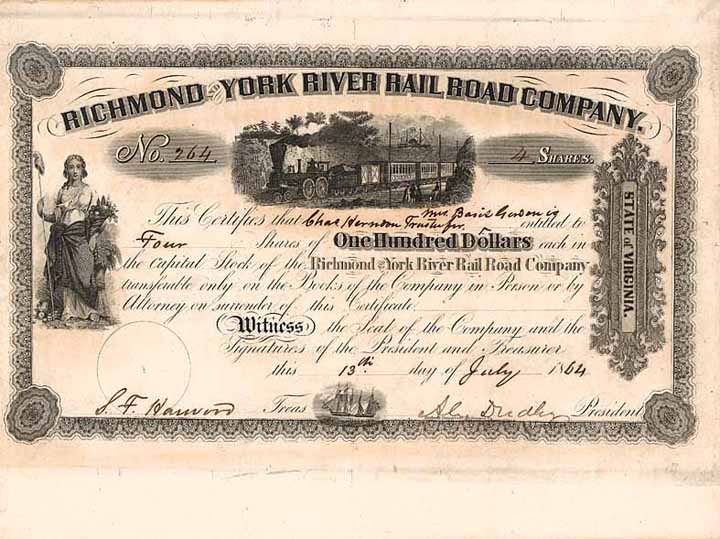 RICHMOND AND YORK RIVER RAIL ROAD COMPANY.
No. 264
4 SHARES.
Mrs Basil Gordon
This Certifies that Chas Herndon Trustee for is entitled to
Four Shares of One Hundred Dollars each in
the Capital Stock of the Richmond and York River Rail Road Company
transferable only on the Books of the Company in Person or by
Attorney on surrender of this Certificate.
Witness the Seal of the Company and the
Signatures of the President and Treasurer
this 13th day of July 1864
S. F. Harwood Treas
Alex Dudley President
STATE of VIRGINIA.